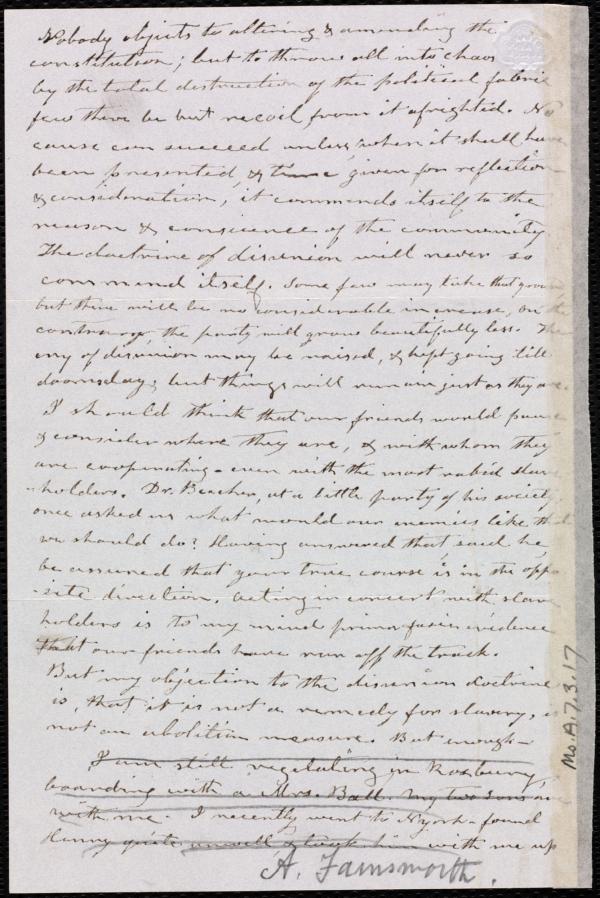 Nobody objects to altering & amending the
constitution; but to throw all into chaos
by the total destruction of the political fabric
few there be but recoil from it afrighted. No
cause can succeed unless, when it shall have
been presented, & time given for reflection
& consideration, it commends itself to the
reason & conscience of the community
The doctrine of disunion will never so
commend itself. Some few may take that ground
but there will be no considerable increase, on the
contrary, the party will grow beautifully less. The
cry of disunion may be raised, & kept going till
doomsday; but things will remain just as they are.
I should think that our friends would pause
& consider where they are, & with whom they
are cooperating - even with the most rabid slave
-holders. Dr. Beecher, at a little party of his society,
once asked us what would our enemies like that
we should do? Having answered that, said he,
be assured that your true course is in the oppo
-site direction. Acting in concert with slave
holders is to my mind prima facie evidence
that our friends have run off the track.
But my objection to the disunion doctrine
is, that it is not a remedy for slavery, is
not an abolition measure. But enough -
I am still vegetating in Roxbury,
boarding with a Mrs. Ball. My two sons are
with me. I recently went to N york - found
Henry quite unwell & took him with me up
A. Farnsworth.
Ms.A.7.3.17